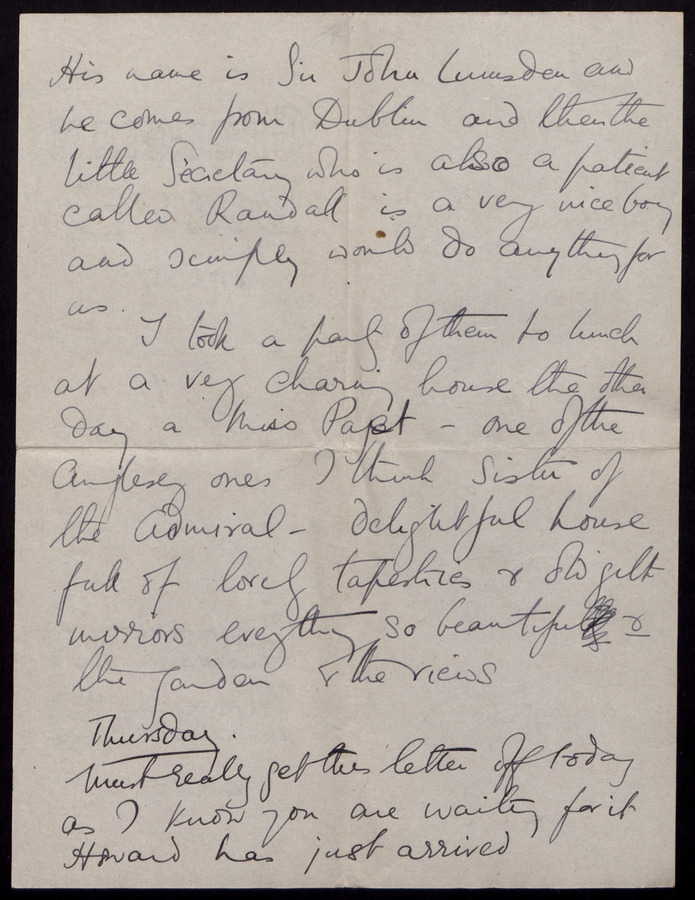 His name is Sir John Lumsden and
he comes from Dublin and then the
little Secretary who is also a patient
called Randall is a very nice boy
and simply would do anything for
us.
I took a party of them to lunch
at a very charming house the other
day a Miss Paget - one of the
Anglesey ones I think Sister of
the Admiral - delightful house
full of lovely tapestries & old gilt
mirrors everything so beautiful &
the garden & the views
Thursday.
Must really get this letter off today
as I know you are waiting for it
Howard has just arrived